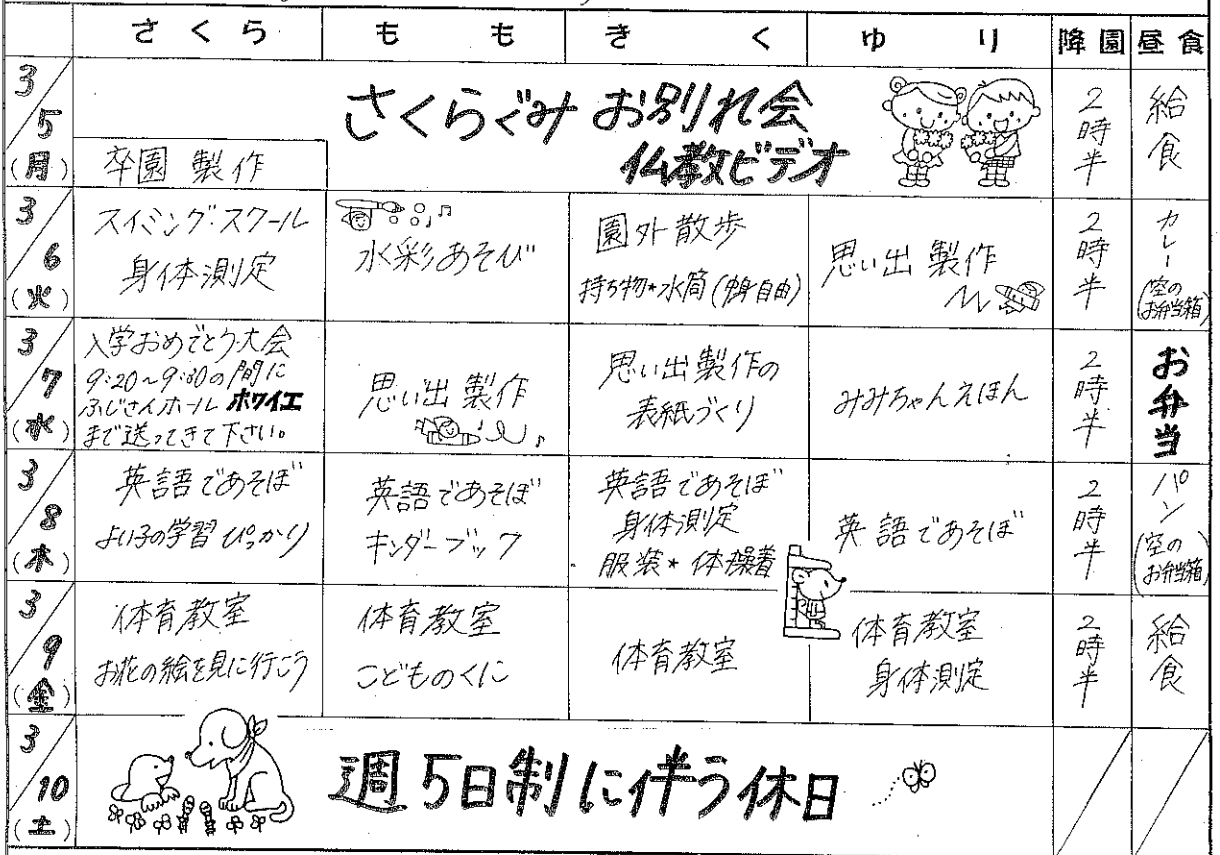 さくら もも きく ゆり 降園 昼食
3/5(月)
さくらぐみ お別れ会
仏教ビデオ
卒園 製作
2時半
給食
3/6(火)
スイミング・スクール
身体測定
水彩あそび
園外散歩
持ち物*水筒(中身自由)
思い出 製作
2時半
カレー
(空のお弁当箱)
3/7(水)
入学おめでとう大会
9:20~9:30の間に
ふじさんホール ホワイエ
まで送ってきて下さい。
思い出 製作
思い出製作の
表紙づくり
みみちゃんえほん
2時半
お弁当
3/8(木)
英語であそぼ
よい子の学習 ぴっかり
英語であそぼ
キンダーブック
英語であそぼ
身体測定
服装*体操着
英語であそぼ
2時半
パン
(空のお弁当箱)
3/9(金)
体育教室
お花の絵を見に行こう
体育教室
こどものくに
体育教室
体育教室
身体測定
2時半
給食
3/10(土)
週5日制に伴う休日